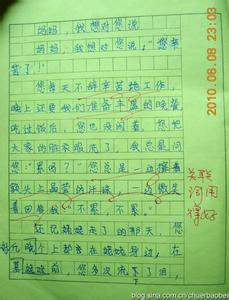 妈妈,我想对您说
妈妈,我想对您说,“您辛
苦了!”
您每天不辞辛苦地工作,
晚上还要我们准备丰盛的晚餐
吃过饭后,您也没闲着,您把
大家的脏衣服洗了,我总是问
您:“累吗?”您总是一边擦着
额头上晶莹的汗珠,一边微笑
着回答我“不累,不累。”
还记姥姥走了的那天,您
好几晚上都守在姥姥身边,在
墓 前,您多次流下了泪,
关联
词用
得好
2010.06.08 23:03
blog.sina.com.cn/chuerbaobei